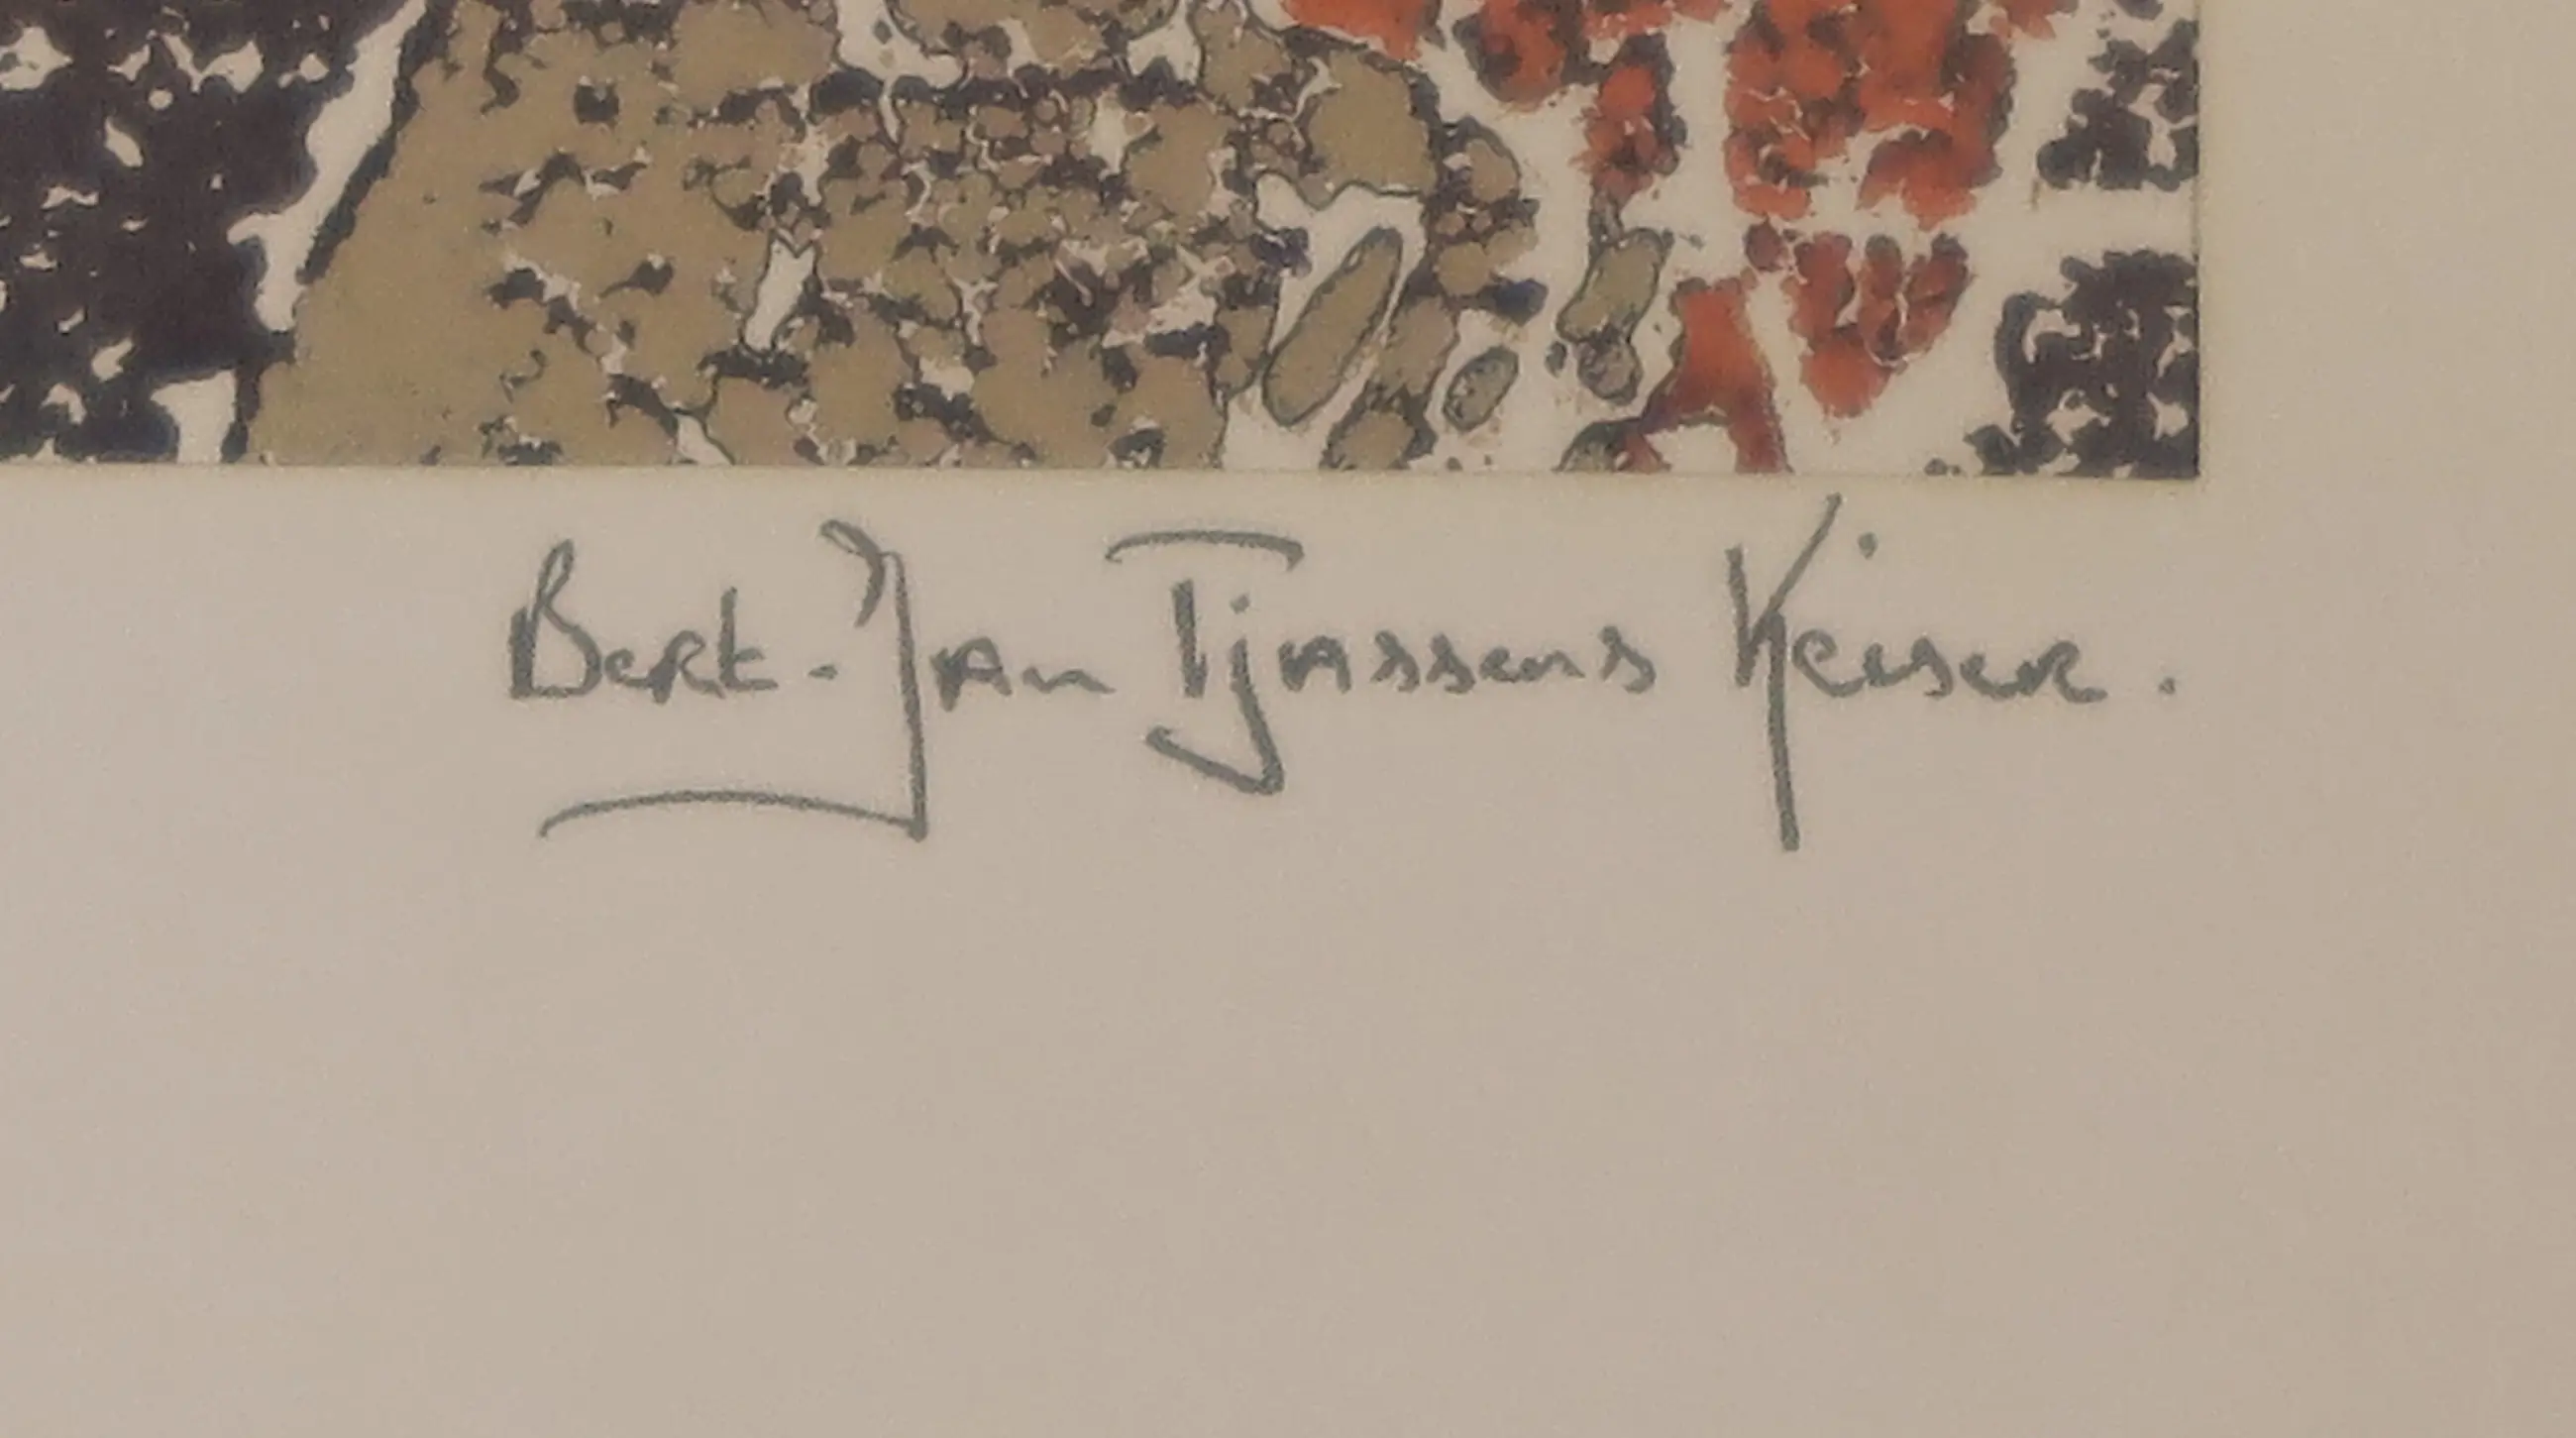 Bert-Jan Tjassens Keiser.